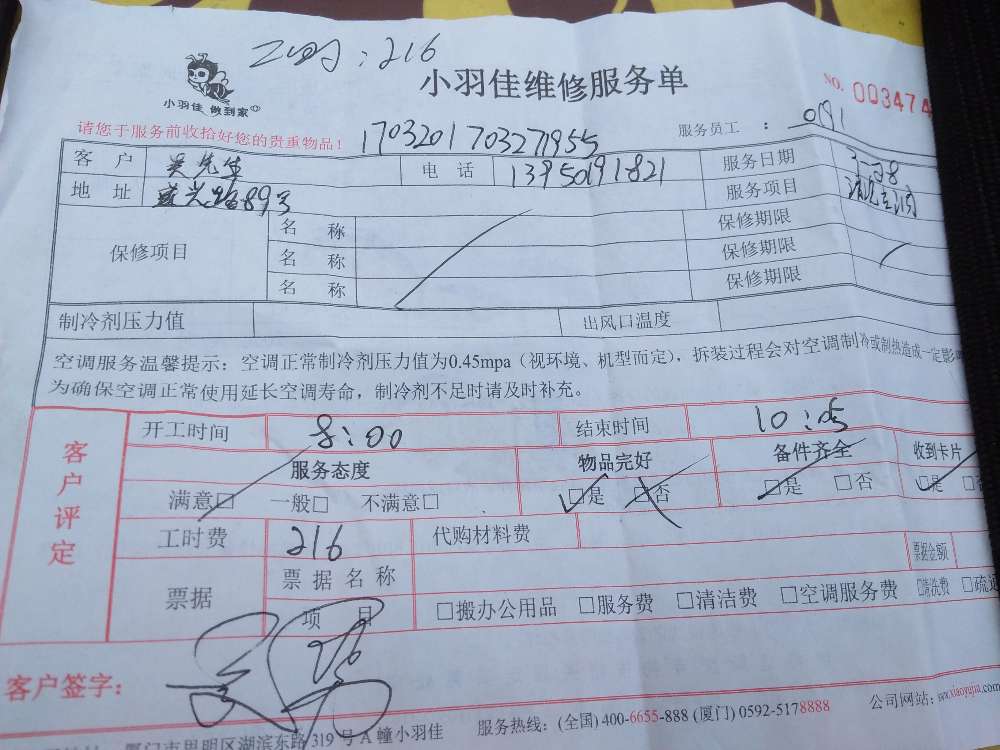 :216
小羽佳维修服务单
NO. 003474
小羽佳 做到家
请您于服务前收拾好您的贵重物品！ 1703201703271955 服务员工 ： 0191
客 户 吴先生 电 话 13950191821 服务日期 3-28
地 址 89号 服务项目
保修项目 名 称 保修期限
名 称 保修期限
名 称 保修期限
制冷剂压力值 出风口温度
空调服务温馨提示：空调正常制冷剂压力值为0.45mpa（视环境、机型而定），拆装过程会对空调制冷或制热造成一定影
为确保空调正常使用延长空调寿命，制冷剂不足时请及时补充。
客户评定
开工时间 8:00 结束时间 10:05
服务态度 物品完好 备件齐全 收到卡片
满意□ 一般□ 不满意□ □是 □否 □是 □否 □是 □否
工时费 216 代购材料费
票据 票 据 名 称 票据金额
项 目 □搬办公用品 □服务费 □清洁费 □空调服务费 □清洗费
客户签字：
厦门市思明区湖滨东路319号A幢小羽佳 服务热线：(全国) 400-6655-888 (厦门) 0592-5178888 公司网站：www.xiaoyujia.com